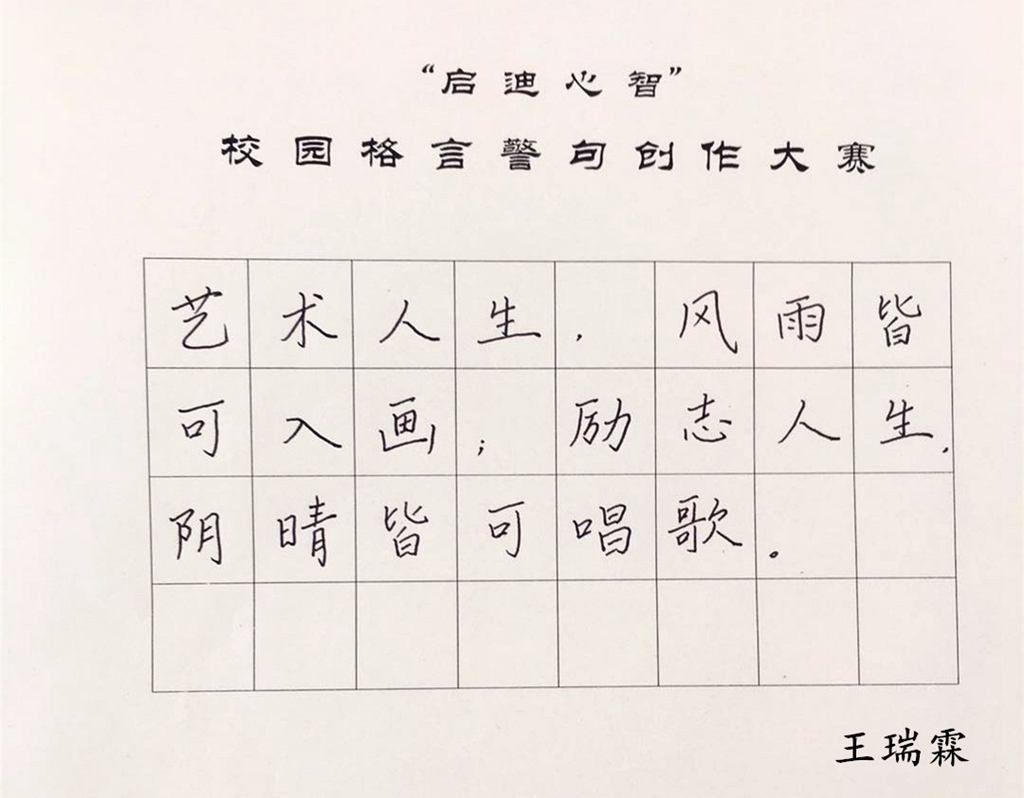 “启迪心智”
校园格言警句创作大赛
艺术人生，风雨皆
可入画；励志人生，
阴晴皆可唱歌。
王瑞霖